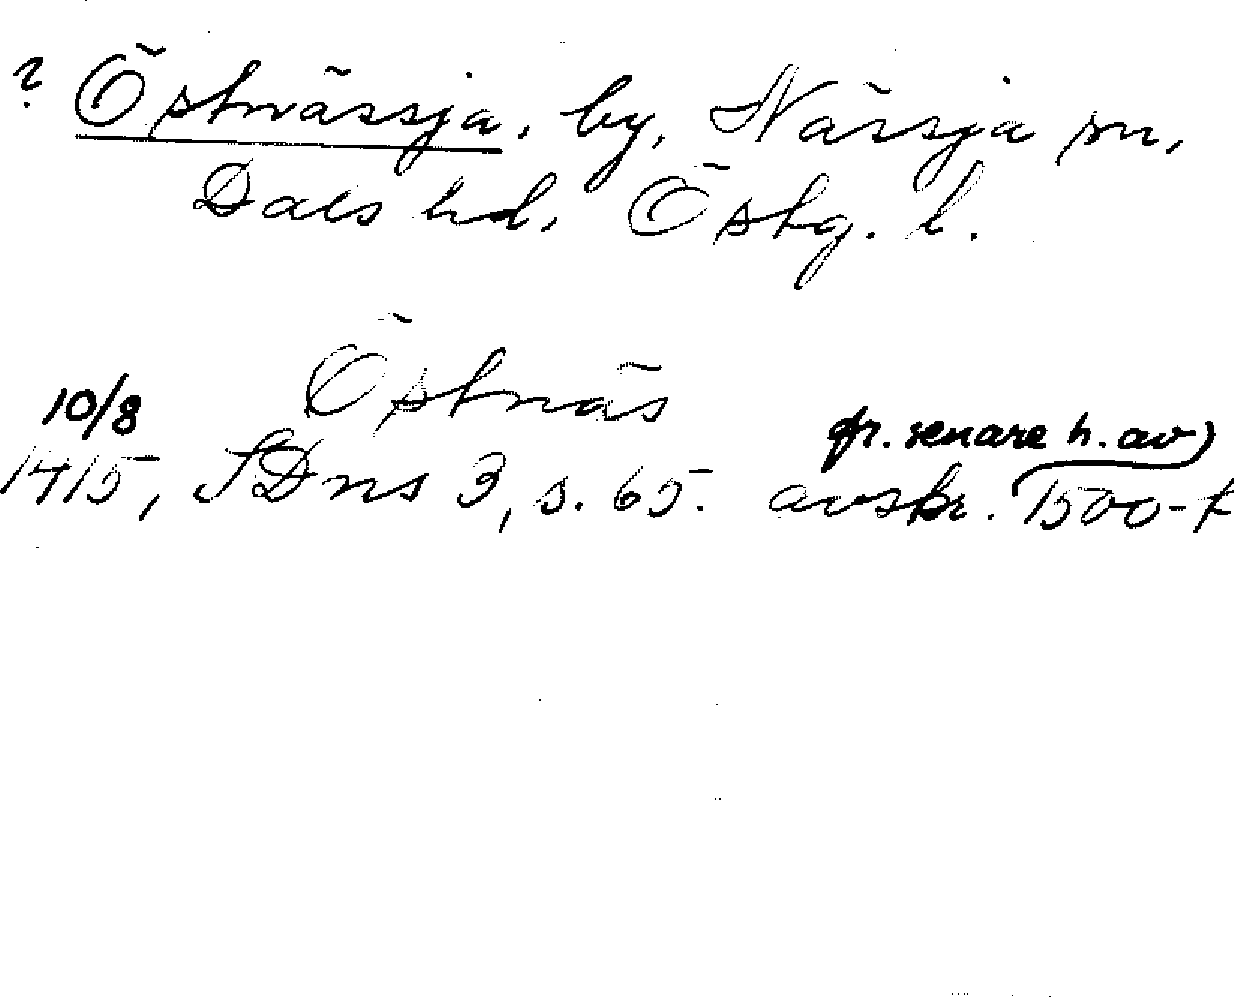 ? Östnässja, by, Nässja sn,
Dals hd, Östg. l.
Östnäs
10/8
fr. senare h. av)
1415, SDns 3, s. 65. avskr. 1500-t